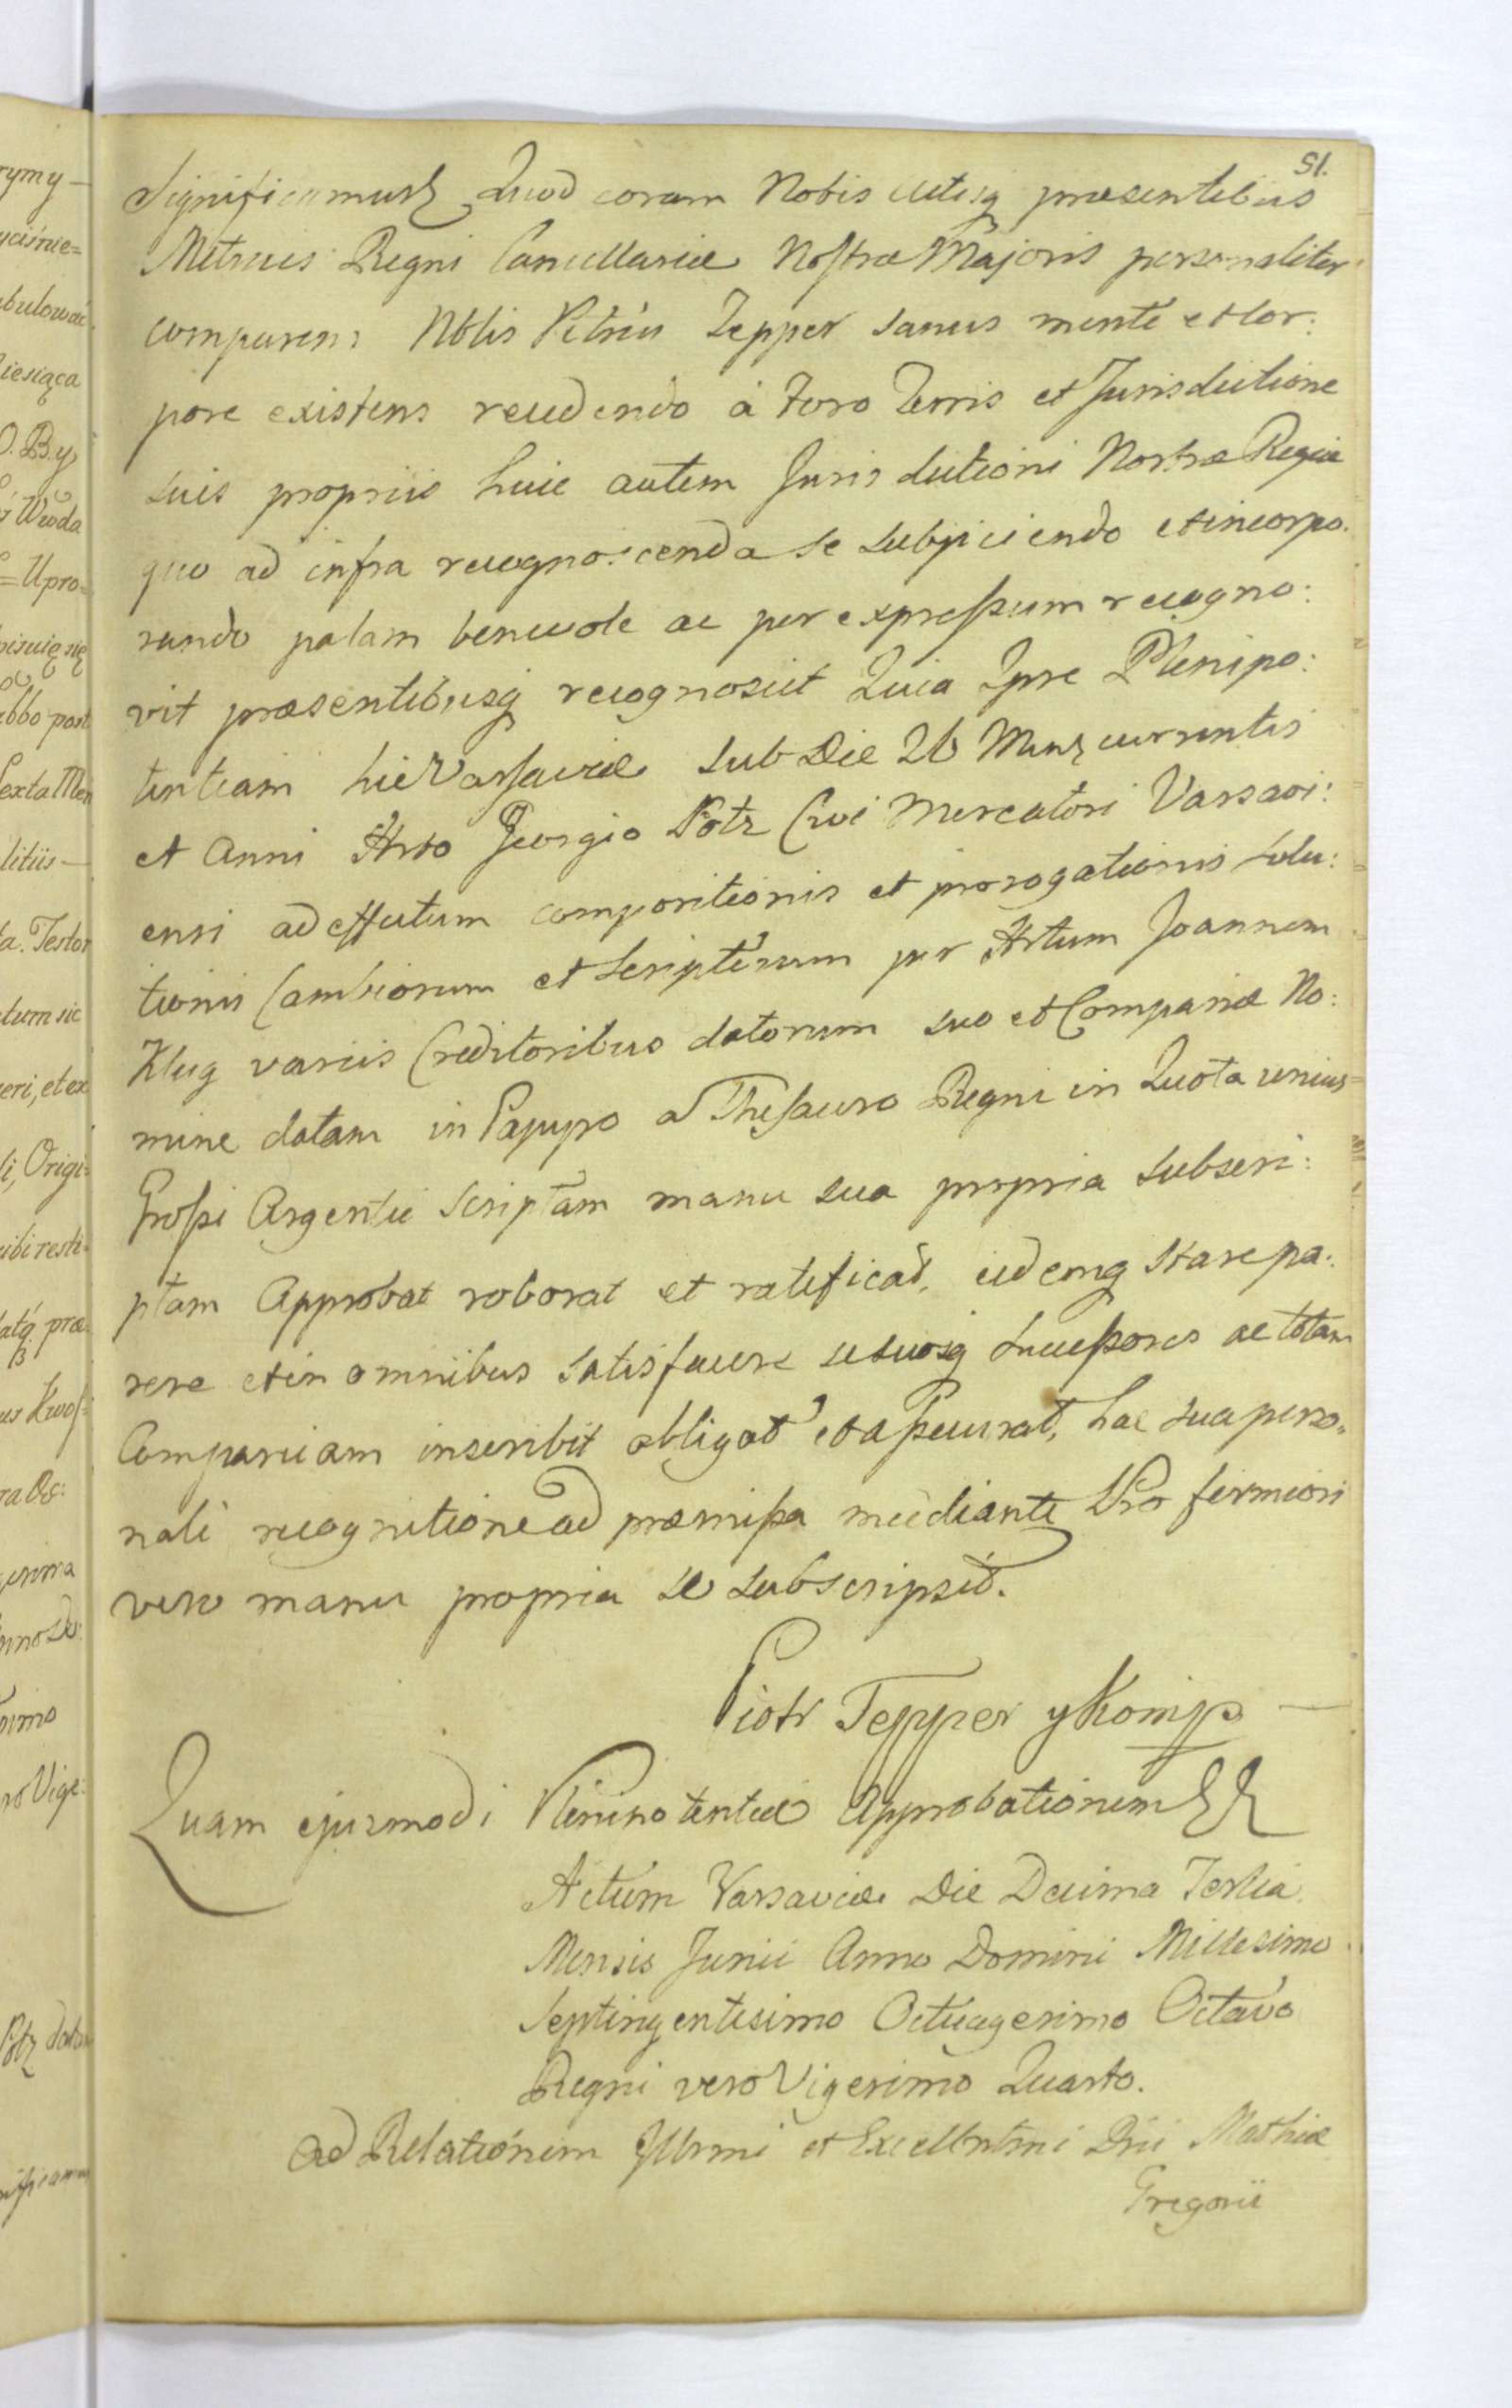 51.
Significamus Quod coram Nobis Actisq praesentibus
Metrices Regni Cancellariae Nostrae Majoris personaliter
comparens Nblis Petrus Tepper sanus mente et Cor:
pore existens recedendo à Foro Terris et Jurisdictione
suis propriis huic autem Jurisdictioni Nostrae Regiae
quo ad infra recognoscenda se subjiciendo et incorpo:
rando palam benevole ac per expressum recogno:
vit praesentibusq recognoscit Quia Ipse Plenipo:
tentiam hic Varsaviae sub Die 26 Mens currentis
et Anni Georgio Potz Civi Mercatori Varsavi:
ensi ad effectum compositionis et prorogationis solu:
tionis Cambiorum et Scripterum per Joannem
Klug variis Creditoribus datorum suo et Companiae No:
mine datam in Papyro a Thesauro Regni in Quota unius
Grossi Argentei Scriptam manu sua propria subscri:
ptam Approbat roborat et ratificat, eidemq stare pa:
rere et in omnibus satisfacere se suosq Successores ac totam
Compariam inscribit obligat et assecurat, hac sua perso:
nali recognitione ad praemissa mediante Pro firmiori
vero manu propria se subscripsit.
Piotr Tepper y Komp
Quam ejusmodi Plenipotentiae Approbationem
Actum Varsaviae Die Decima Tertia
Mensis Junii Anno Domini Millesimo
Septingentesimo Octuagesimo Octavo
Regni vero Vigesimo Quarto.
Ad Relationem Illrmi et Excellntmi Dni Mathiae
Gregorii